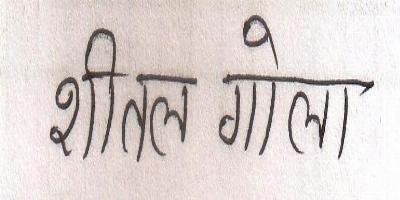 शीतल गोला